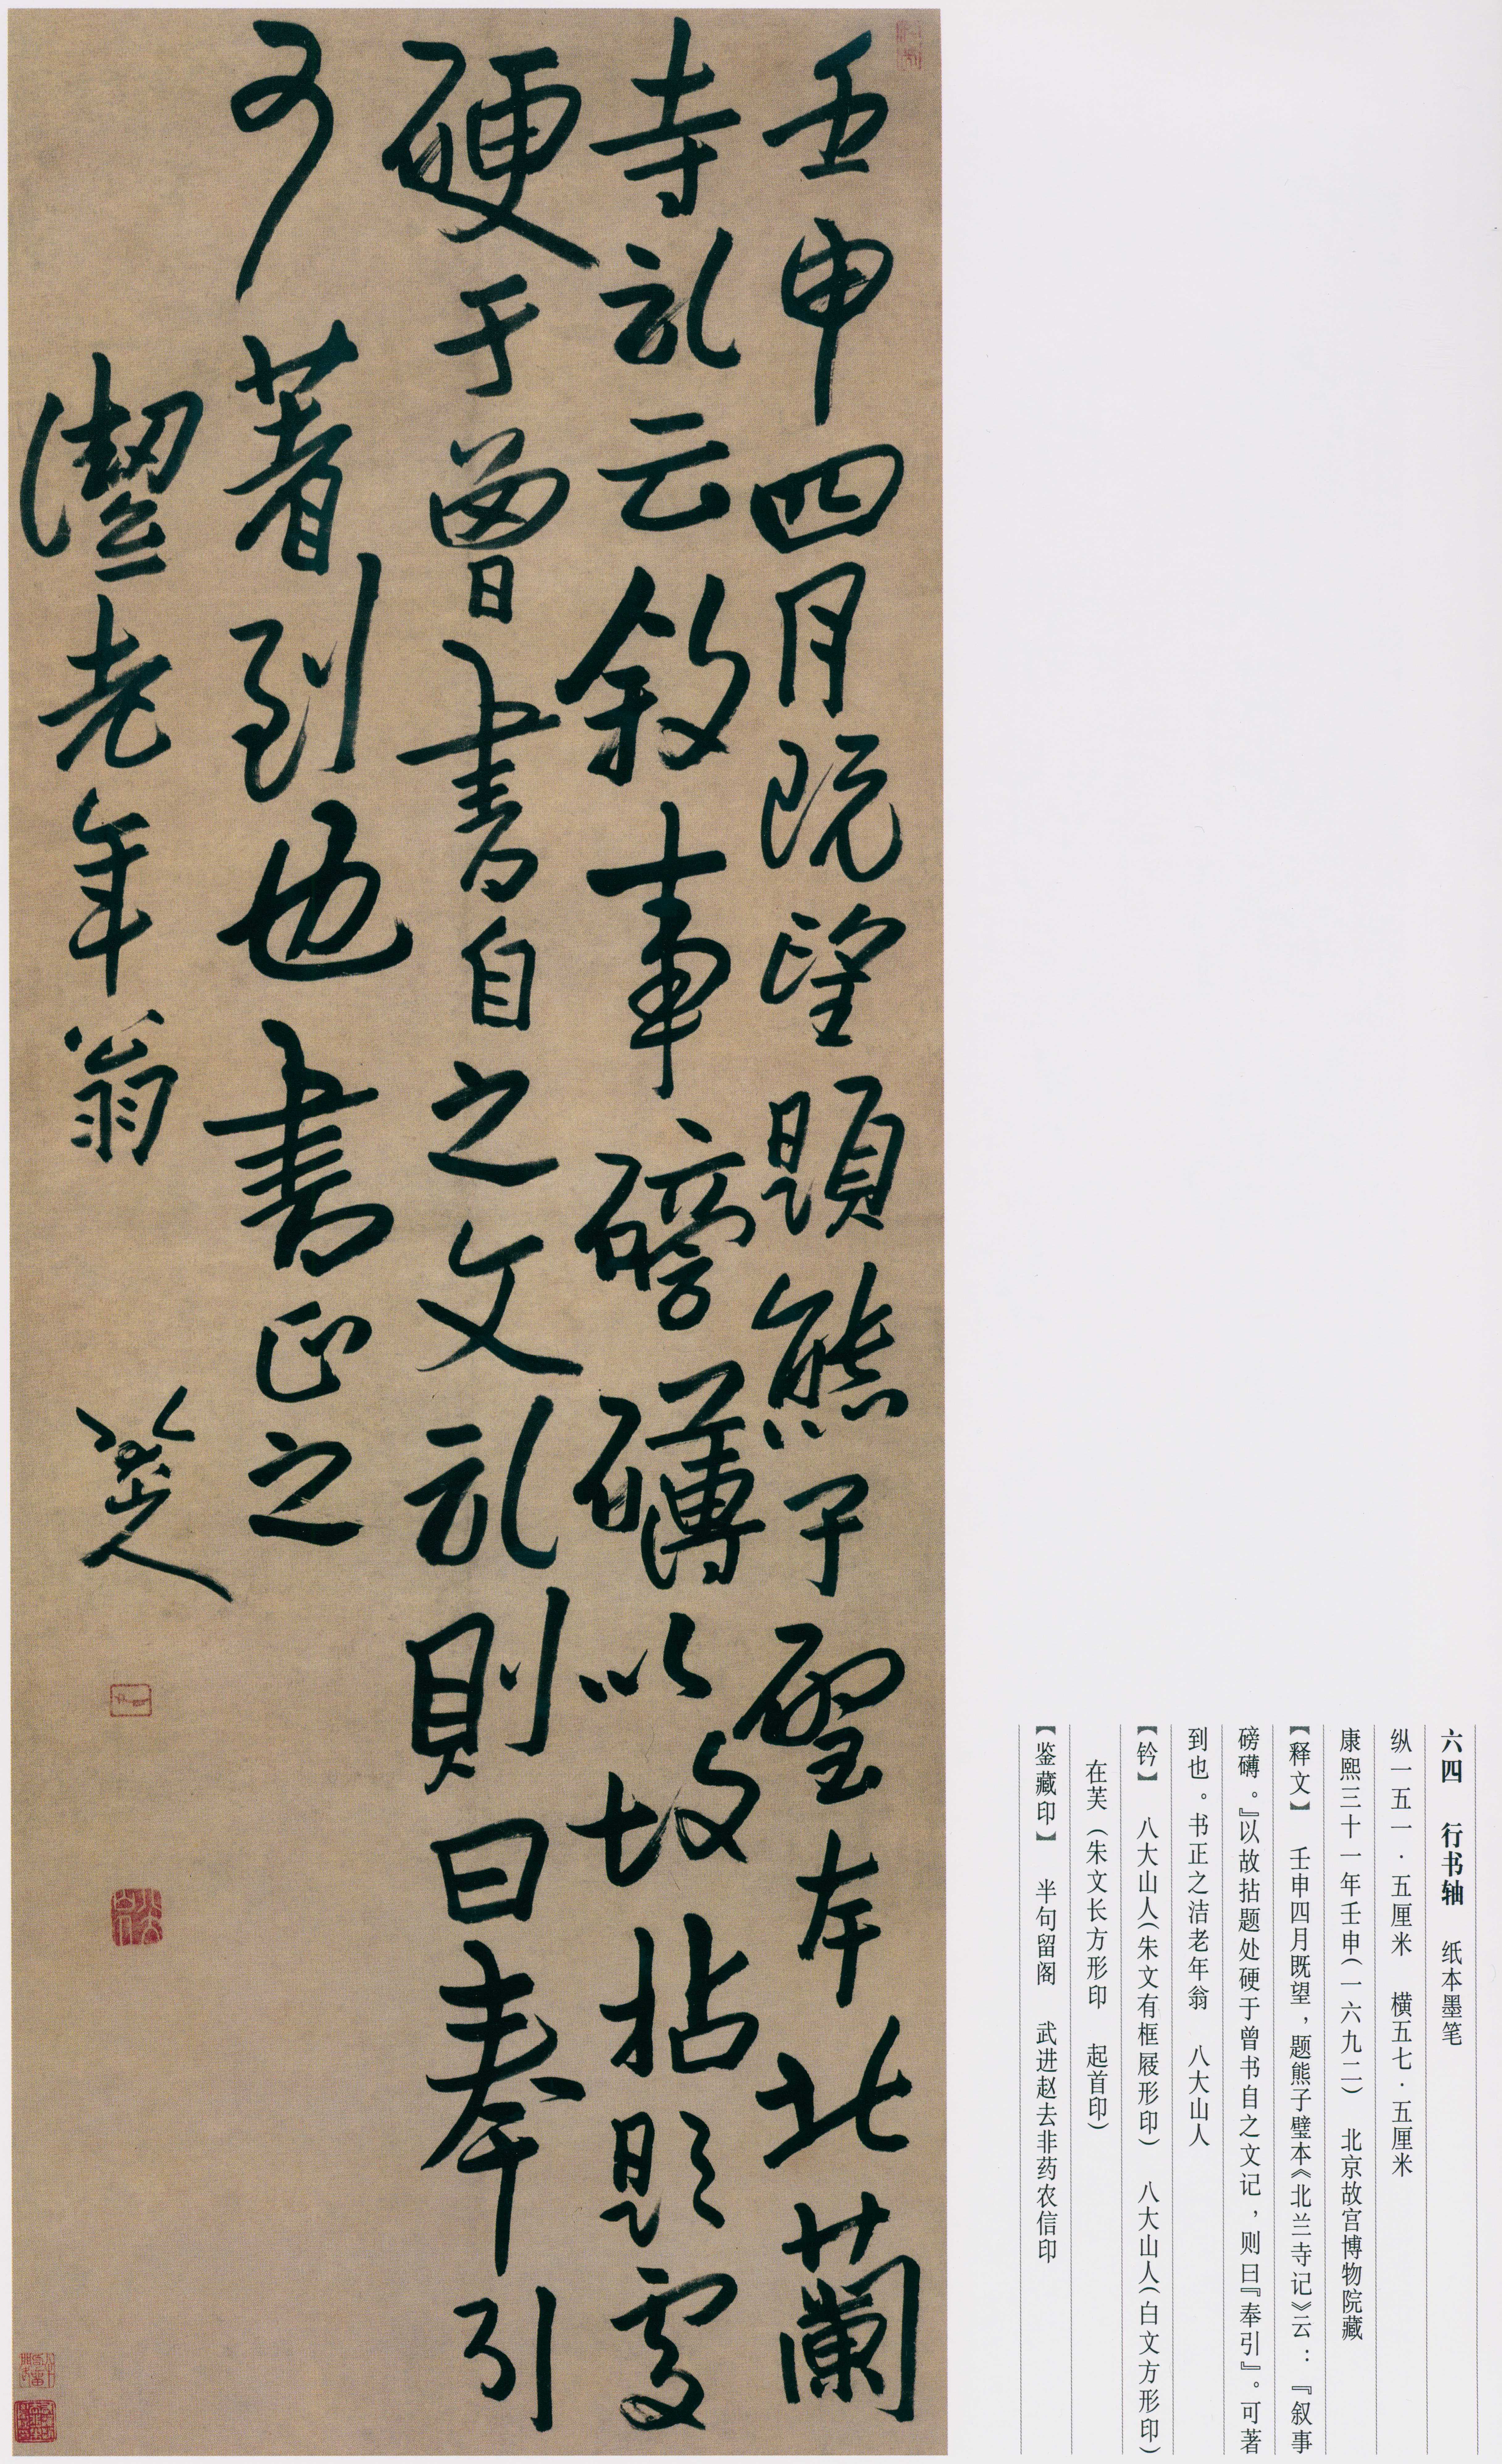 六四　行书轴　纸本墨笔
纵一五一·五厘米　横五七·五厘米
康熙三十一年壬申（一六九二）　北京故宫博物院藏
【释文】　壬申四月既望，题熊子璧本《北兰寺记》云：『叙事
磅礴。』以故拈题处硬于曾书自之文记，则曰『奉引』。可著
到也。书正之洁老年翁　八大山人
【钤】　八大山人（朱文有框屐形印）　八大山人（白文方形印）
在芙（朱文长方形印　起首印）
【鉴藏印】　半句留阁　武进赵去非药农信印
壬申四月既望題熊子璧本北蘭
寺記云敘事磅礴以故拈題處
硬于曾書自之文記則曰奉引
可著到也書正之
潔老年翁　八大山人